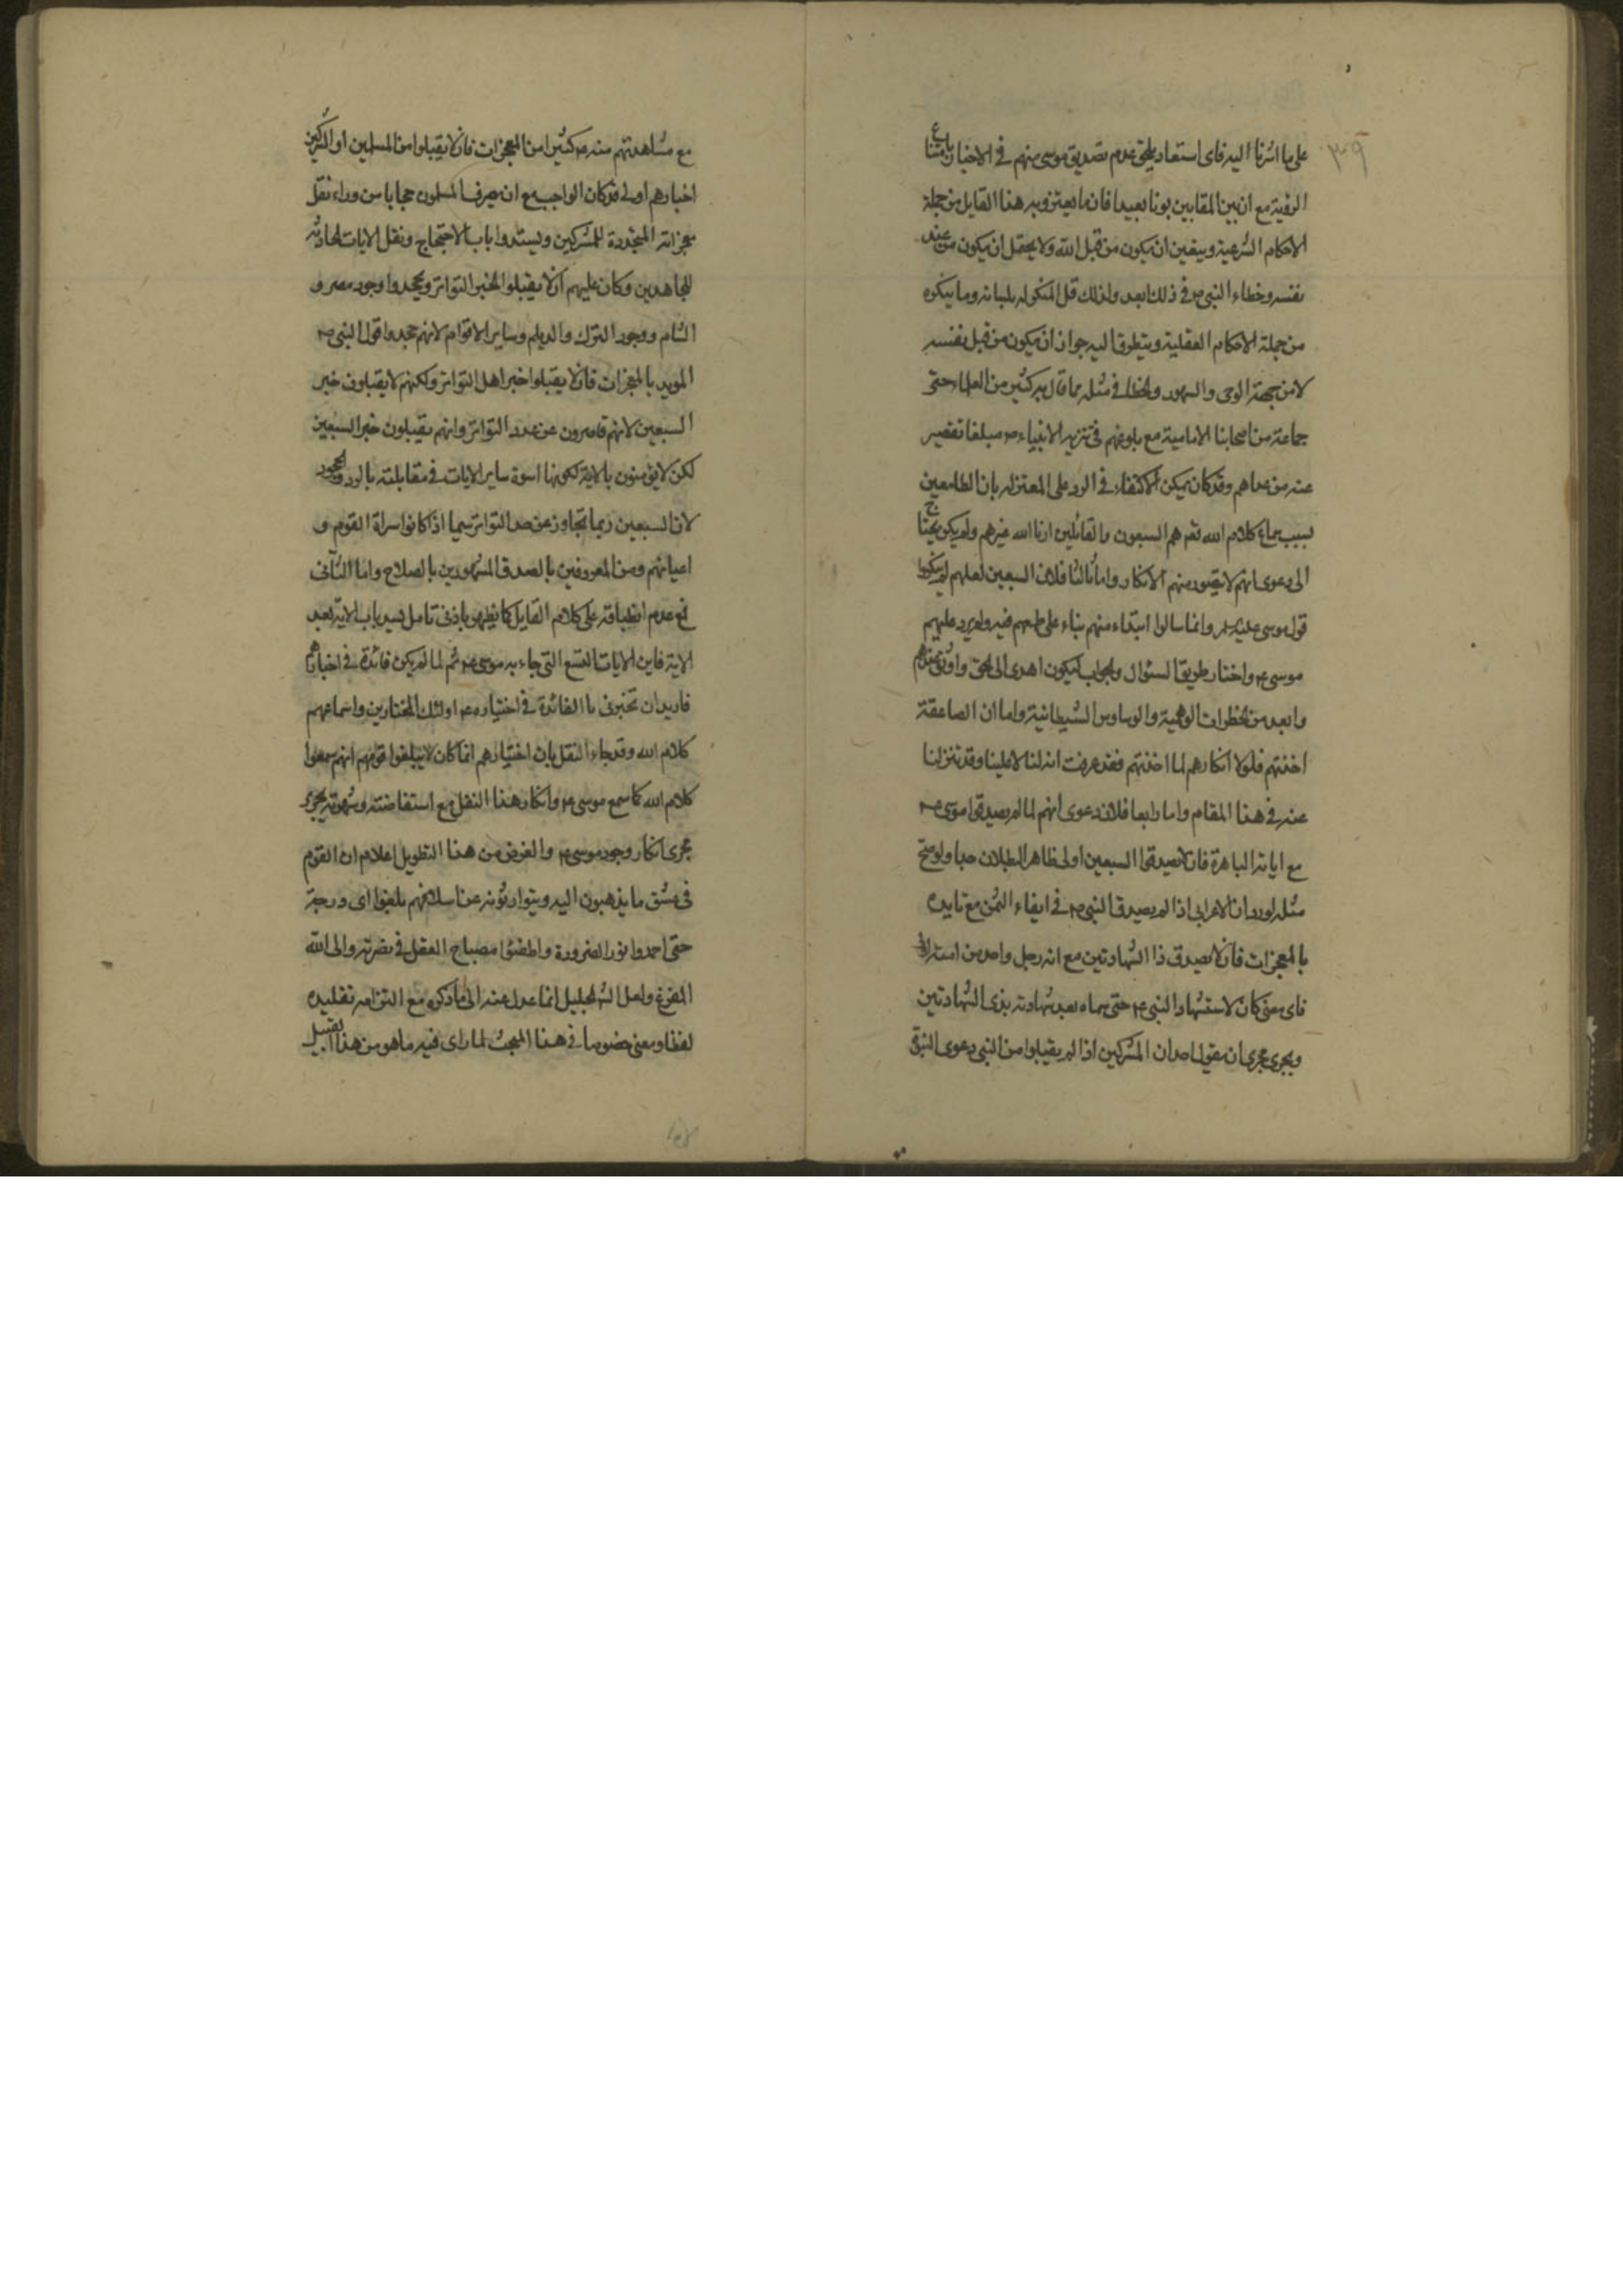 ٣٩
على ما اشرنا اليه فاى استبعاد يلحق عدم تصديق موسى منهم فى الاخبار بامتناع
الرؤية مع ان بين المقامين بونا بعيدا فان ما يعتز وبه هذا القايل من جملة
الاحكام الشرعية ويتعين ان يكون من قبل الله ولا يحتمل ان يكون من عند
نفسه وخطاء النبى ص فى ذلك ابعد ولذلك قل المنكر له بلسانه وما ينكره
من جملة الاحكام العقلية ويتطرق اليه جواز ان يكون من قبل نفسه
لا من جهة الوحى والسهو والخطا فى مثله مما قال به كثير من العلماء حتى
جماعة من اصحابنا الامامية مع بلوغهم فى تنزيه الانبياء ص مبلغا تقصير
عنه من عداهم وقد كان يمكن الاكتفاء فى الرد على المعتزله بان الطامعين
بسبب سماع كلام الله تع هم السبعون والقائلين ارنا الله غيرهم ولم يكن يحتاج
الى دعوى انهم لا يتصور منهم الانكار واما ثالثا فلان السبعين لعلهم لم ينكروا
قول موسى عليه لم وانما سالوا ابتداء منهم بناء على طمعهم فيه ولم يرد عليهم
موسى ع واختار طريق السئوال والجواب ليكون اهدى الى الحق واوثق عندهم
وابعد من الخطرات الوهمية والوساوس الشيطانية واما ان الصاعقة
اخذتهم فلولا انكارهم لما اخذتهم فقد عرفت انه لنا لا علينا وقد تنزلنا
عنه فى هذا المقام واما رابعا فلان دعوى انهم لما لم يصدقوا موسى ع
مع اياته الباهرة فان لا يصدقوا السبعين اولى ظاهر البطلان جدا ولو صح
مثله لورد ان الاعرابى اذا لم يصدق النبى ص فى ايفاء الثمن مع تايده
بالمعجزات فان لا يصدق ذا الشهادتين مع انه رجل واحد من امته اولى
فاى معنى كان لاستشهاد النبى ص حتى سماه بعد شهادته بذى الشهادتين
ويجرى مجرى ان يقول احد ان المشركين اذا لم يقبلوا من النبى دعوى النبوة
مع مشاهدتهم منه ص كثيرا من المعجزات فان لا يقبلوا من المسلمين او المشركين
اخبارهم اولى فكان الواجب مع ان يصرف المسلمون حجابا من وراء نقل
معجزاته المتجددة للمشركين ويستدوا باب الاحتجاج ونقل الايات الحادثة
للجاحدين وكان عليهم ان لا يقبلوا الخبر المتواتر ويجحدوا وجود مصر و
الشام ووجود الترك والديلم وساير الاقوام لانهم جحدوا قول النبى ص
المويد بالمعجزات فان لا يقبلوا خبر اهل التواتر ولكنهم لا يقبلون خبر
السبعين لانهم قاصرون عن عدد التواتر وانهم يقبلون خبر السبعين
لكن لا يؤمنون بالاية لكونها اسوة ساير الايات فى مقابلته بالرد والجحود
لان السبعين ربما تجاوز عن حد التواتر سيما اذا كانوا سراة القوم و
اعيانهم ومن المعروفين بالصدق المشهورين بالصلاح واما الثانى
فمع عدم انطباقه على كلام القايل كما يظهر بادنى تامل يسد باب الاية بعد
الاية فاين الايات التسع التى جاء به موسى ع ثم لما لم يكن فائدة فى اخبارهم
فاريد ان تخبرنى ما الفائدة فى اختياره ع اولئك المختارين واسماعهم
كلام الله وقد جاء النقل بان اختيارهم انما كان لان يبلغوا قومهم انهم سمعوا
كلام الله كما سمع موسى ع وانكار هذا النقل مع استفاضته وشهرته يجرى
مجرى انكار وجود موسى ع والغرض من هذا التطويل اعلام ان القوم
فى عشق ما يذهبون اليه ويتوارثونه عن اسلافهم بلغوا اى درجة
حتى اخمدوا نور الضرورة واطفئوا مصباح العقل فى نصرته والى الله
المفزع ولعل الشه الجليل انما عدل عنه الى ما ذكره مع التزامه تقليده
لفظا ومعنى خصوصا فى هذا المبحث لما راى فيه ما هو من هذا القبيل